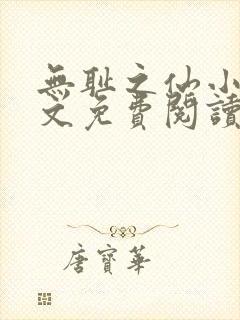 無耻之仙小
文免費閱讀
唐寶華